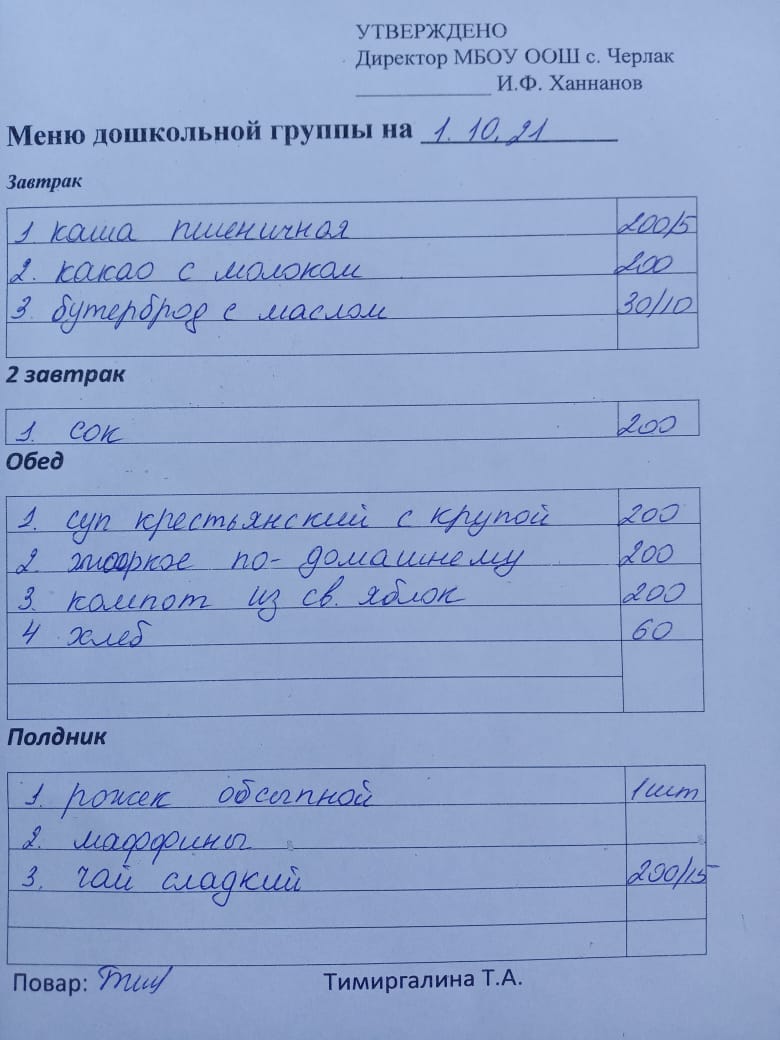 УТВЕРЖДЕНО
Директор МБОУ ООШ с. Черлак
_____________ И.Ф. Ханнанов
Меню дошкольной группы на 1.10.21
Завтрак
1. каша пшеничная 200/5
2. какао с молоком 200
3. бутерброд с маслом 30/10
2 завтрак
1. сок 200
Обед
1. суп крестьянский с крупой 200
2. жаркое по-домашнему 200
3. компот из св. яблок 200
4 хлеб 60
Полдник
1. рожек обсыпной 1шт
2. маффины
3. чай сладкий 200/15
Повар: Тимиргалина Т.А.